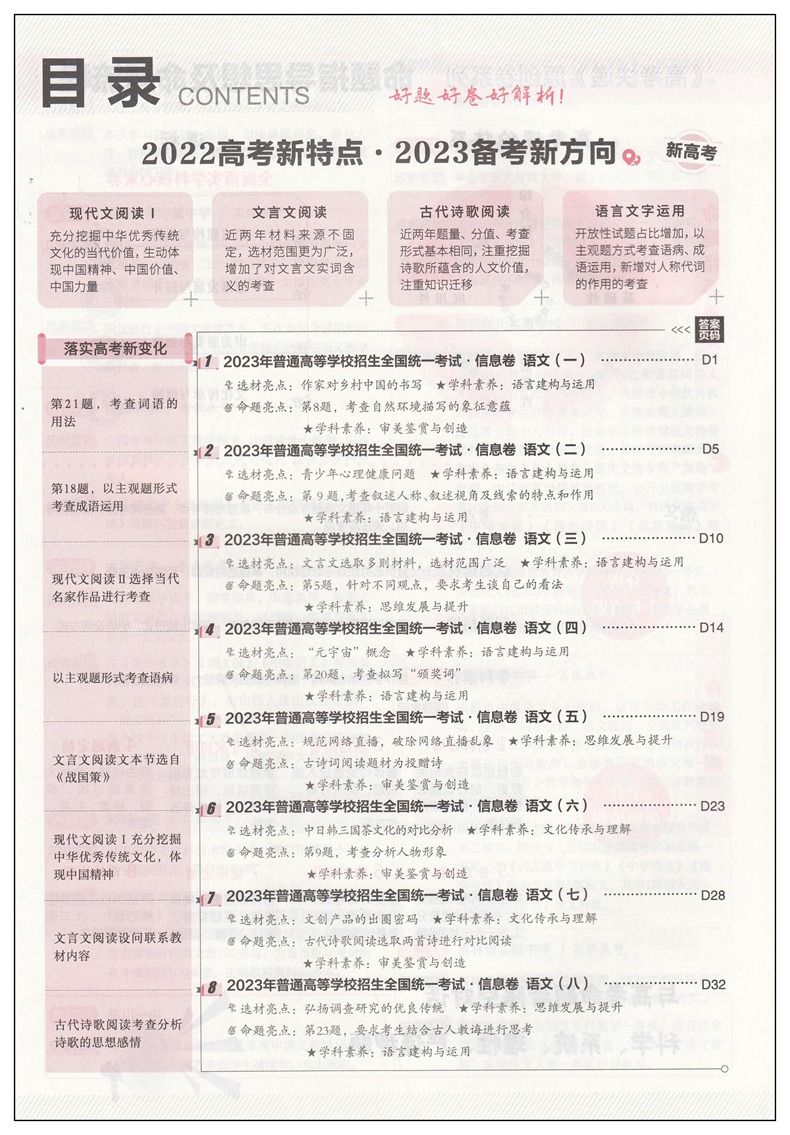 目录 CONTENTS
好题好卷好解析!
2022高考新特点·2023备考新方向
新高考
现代文阅读Ⅰ
充分挖掘中华优秀传统
文化的当代价值，生动体
现中国精神、中国价值、
中国力量
文言文阅读
近两年材料来源不固
定，选材范围更为广泛，
增加了对文言文实词含
义的考查
古代诗歌阅读
近两年题量、分值、考查
形式基本相同，注重挖掘
诗歌所蕴含的人文价值，
注重知识迁移
语言文字运用
开放性试题占比增加，以
主观题方式考查语病、成
语运用，新增对人称代词
的作用的考查
<<< 答案
页码
落实高考新变化
第21题，考查词语的
用法
第18题，以主观题形式
考查成语运用
现代文阅读Ⅱ选择当代
名家作品进行考查
以主观题形式考查语病
文言文阅读文本节选自
《战国策》
现代文阅读Ⅰ充分挖掘
中华优秀传统文化，体
现中国精神
文言文阅读设问联系教
材内容
古代诗歌阅读考查分析
诗歌的思想感情
1 2023年普通高等学校招生全国统一考试·信息卷 语文（一） ………………… D1
选材亮点：作家对乡村中国的书写 ★学科素养：语言建构与运用
命题亮点：第8题，考查自然环境描写的象征意蕴
★学科素养：审美鉴赏与创造
2 2023年普通高等学校招生全国统一考试·信息卷 语文（二） ………………… D5
选材亮点：青少年心理健康问题 ★学科素养：语言建构与运用
命题亮点：第9题，考查叙述人称、叙述视角及线索的特点和作用
★学科素养：语言建构与运用
3 2023年普通高等学校招生全国统一考试·信息卷 语文（三） ………………… D10
选材亮点：文言文选取多则材料，选材范围广泛 ★学科素养：语言建构与运用
命题亮点：第5题，针对不同观点，要求考生谈自己的看法
★学科素养：思维发展与提升
4 2023年普通高等学校招生全国统一考试·信息卷 语文（四） ………………… D14
选材亮点：“元宇宙”概念 ★学科素养：语言建构与运用
命题亮点：第20题，考查拟写“颁奖词”
★学科素养：语言建构与运用
5 2023年普通高等学校招生全国统一考试·信息卷 语文（五） ………………… D19
选材亮点：规范网络直播，破除网络直播乱象 ★学科素养：思维发展与提升
命题亮点：古诗词阅读题材为投赠诗
★学科素养：审美鉴赏与创造
6 2023年普通高等学校招生全国统一考试·信息卷 语文（六） ………………… D23
选材亮点：中日韩三国茶文化的对比分析 ★学科素养：文化传承与理解
命题亮点：第9题，考查分析人物形象
★学科素养：审美鉴赏与创造
7 2023年普通高等学校招生全国统一考试·信息卷 语文（七） ………………… D28
选材亮点：文创产品的出圈密码 ★学科素养：文化传承与理解
命题亮点：古代诗歌阅读选取两首诗进行对比阅读
★学科素养：审美鉴赏与创造
8 2023年普通高等学校招生全国统一考试·信息卷 语文（八） ………………… D32
选材亮点：弘扬调查研究的优良传统 ★学科素养：思维发展与提升
命题亮点：第23题，要求考生结合古人教诲进行思考
★学科素养：语言建构与运用